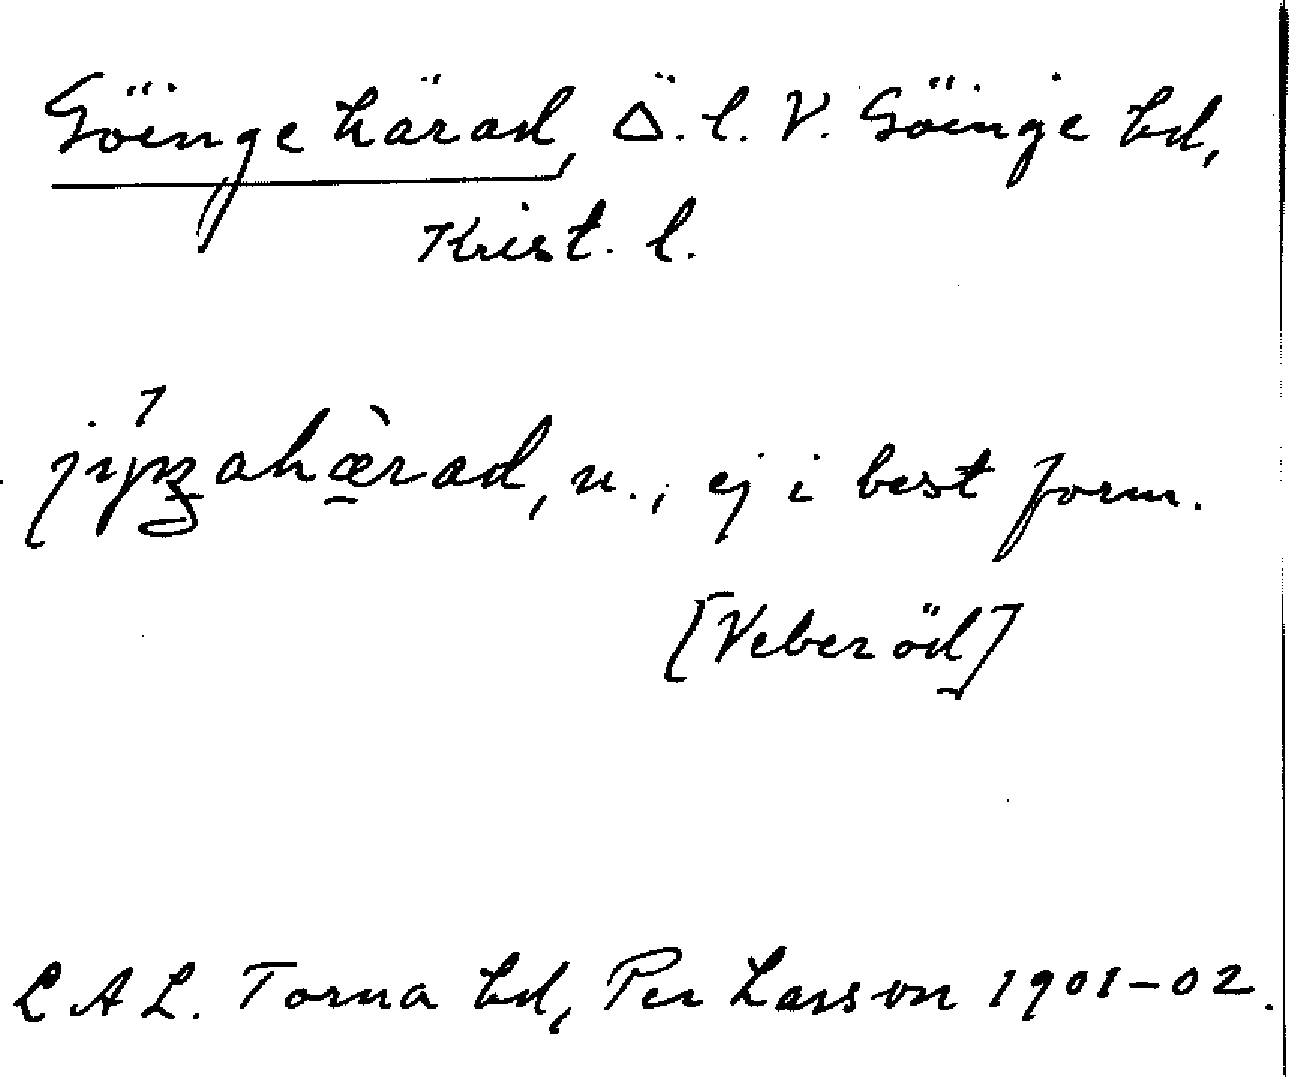 Göinge härad, Ö. l. V. Göinge hd,
Krist. l.
n., ej i best form.
[Veberöd]
LAL. Torna hd, Per Larsson 1901-02.